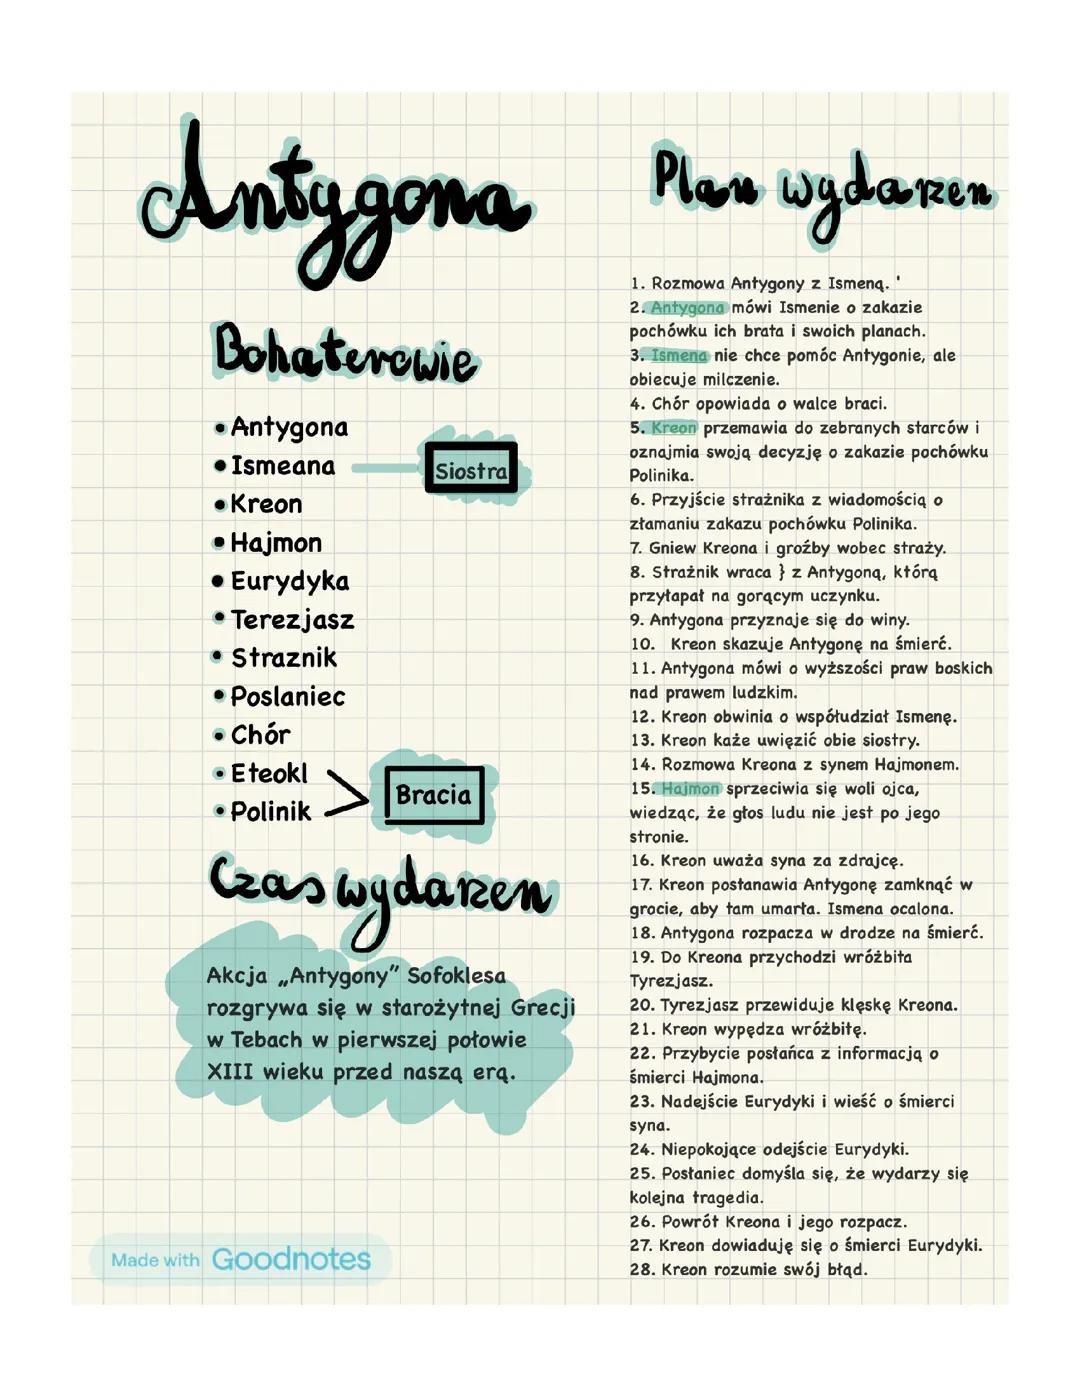 Antygona
Bohaterowie
• Antygona
• Ismeana
Siostra
• Kreon
• Hajmon
• Eurydyka
• Terezjasz
• Straznik
• Poslaniec
• Chór
• Eteokl
• Polinik
Bracia
Czas wydarzen
Akcja „Antygony” Sofoklesa
rozgrywa się w starożytnej Grecji
w Tebach w pierwszej połowie
XIII wieku przed naszą erą.
Made with Goodnotes
Plan wydarzen
1. Rozmowa Antygony z Ismeną. '
2. Antygona mówi Ismenie o zakazie
pochówku ich brata i swoich planach.
3. Ismena nie chce pomóc Antygonie, ale
obiecuje milczenie.
4. Chór opowiada o walce braci.
5. Kreon przemawia do zebranych starców i
oznajmia swoją decyzję o zakazie pochówku
Polinika.
6. Przyjście strażnika z wiadomością o
złamaniu zakazu pochówku Polinika.
7. Gniew Kreona i groźby wobec straży.
8. Strażnik wraca } z Antygoną, którą
przyłapał na gorącym uczynku.
9. Antygona przyznaje się do winy.
10. Kreon skazuje Antygonę na śmierć.
11. Antygona mówi o wyższości praw boskich
nad prawem ludzkim.
12. Kreon obwinia o współudział Ismenę.
13. Kreon każe uwięzić obie siostry.
14. Rozmowa Kreona z synem Hajmonem.
15. Hajmon sprzeciwia się woli ojca,
wiedząc, że głos ludu nie jest po jego
stronie.
16. Kreon uważa syna za zdrajcę.
17. Kreon postanawia Antygonę zamknąć w
grocie, aby tam umarła. Ismena ocalona.
18. Antygona rozpacza w drodze na śmierć.
19. Do Kreona przychodzi wróżbita
Tyrezjasz.
20. Tyrezjasz przewiduje klęskę Kreona.
21. Kreon wypędza wróżbitę.
22. Przybycie posłańca z informacją o
śmierci Hajmona.
23. Nadejście Eurydyki i wieść o śmierci
syna.
24. Niepokojące odejście Eurydyki.
25. Posłaniec domyśla się, że wydarzy się
kolejna tragedia.
26. Powrót Kreona i jego rozpacz.
27. Kreon dowiaduję się o śmierci Eurydyki.
28. Kreon rozumie swój błąd.